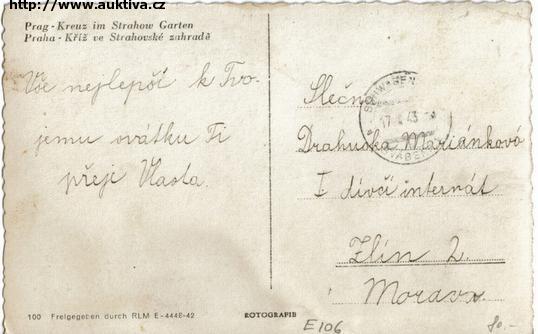 http://www.auktiva.cz
Prag - Kreuz im Strahow Garten
Praha - Kříž ve Strahovské zahradě
Vše nejlepší k Tvo-
jemu svátku Ti
přeje Vlasta.
Slečna
Drahuška Mariánková
I dívčí internát
Zlín 2.
Morava
100 Freigegeben durch RLM E-444E-42
ROTOGRAFIE
E106
80.-